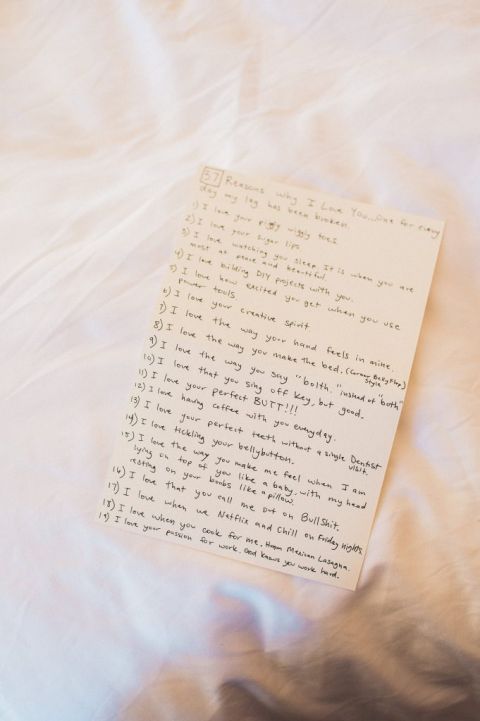 57 Reasons why I Love You...One for every
day my leg has been broken
1) I love your piggly wiggly toes
2) I love your sugar lips
3) I love watching you sleep. It is when you are
most at peace and beautiful.
4) I love building DIY projects with you.
5) I love how excited you get when you use
power tools
6) I love your creative spirit
7) I love the way your hand feels in mine.
8) I love the way you make the bed. (Corner Belly Flop)
style
9) I love the way you say "bolth" instead of "both"
10) I love that you sing off key, but good.
11) I love your perfect BUTT!!!
12) I love having coffee with you everyday.
13) I love your perfect teeth without a single Dentist
visit.
14) I love tickling your bellybutton.
15) I love the way you make me feel when I am
lying on top of you like a baby. with my head
resting on your boobs like a pillow.
16) I love that you call me out on BullShit.
17) I love when we Netflix and Chill on Friday Nights.
18) I love when you cook for me. Hmmm Mexican Lasagna.
19) I love your passion for work. God knows you work hard.